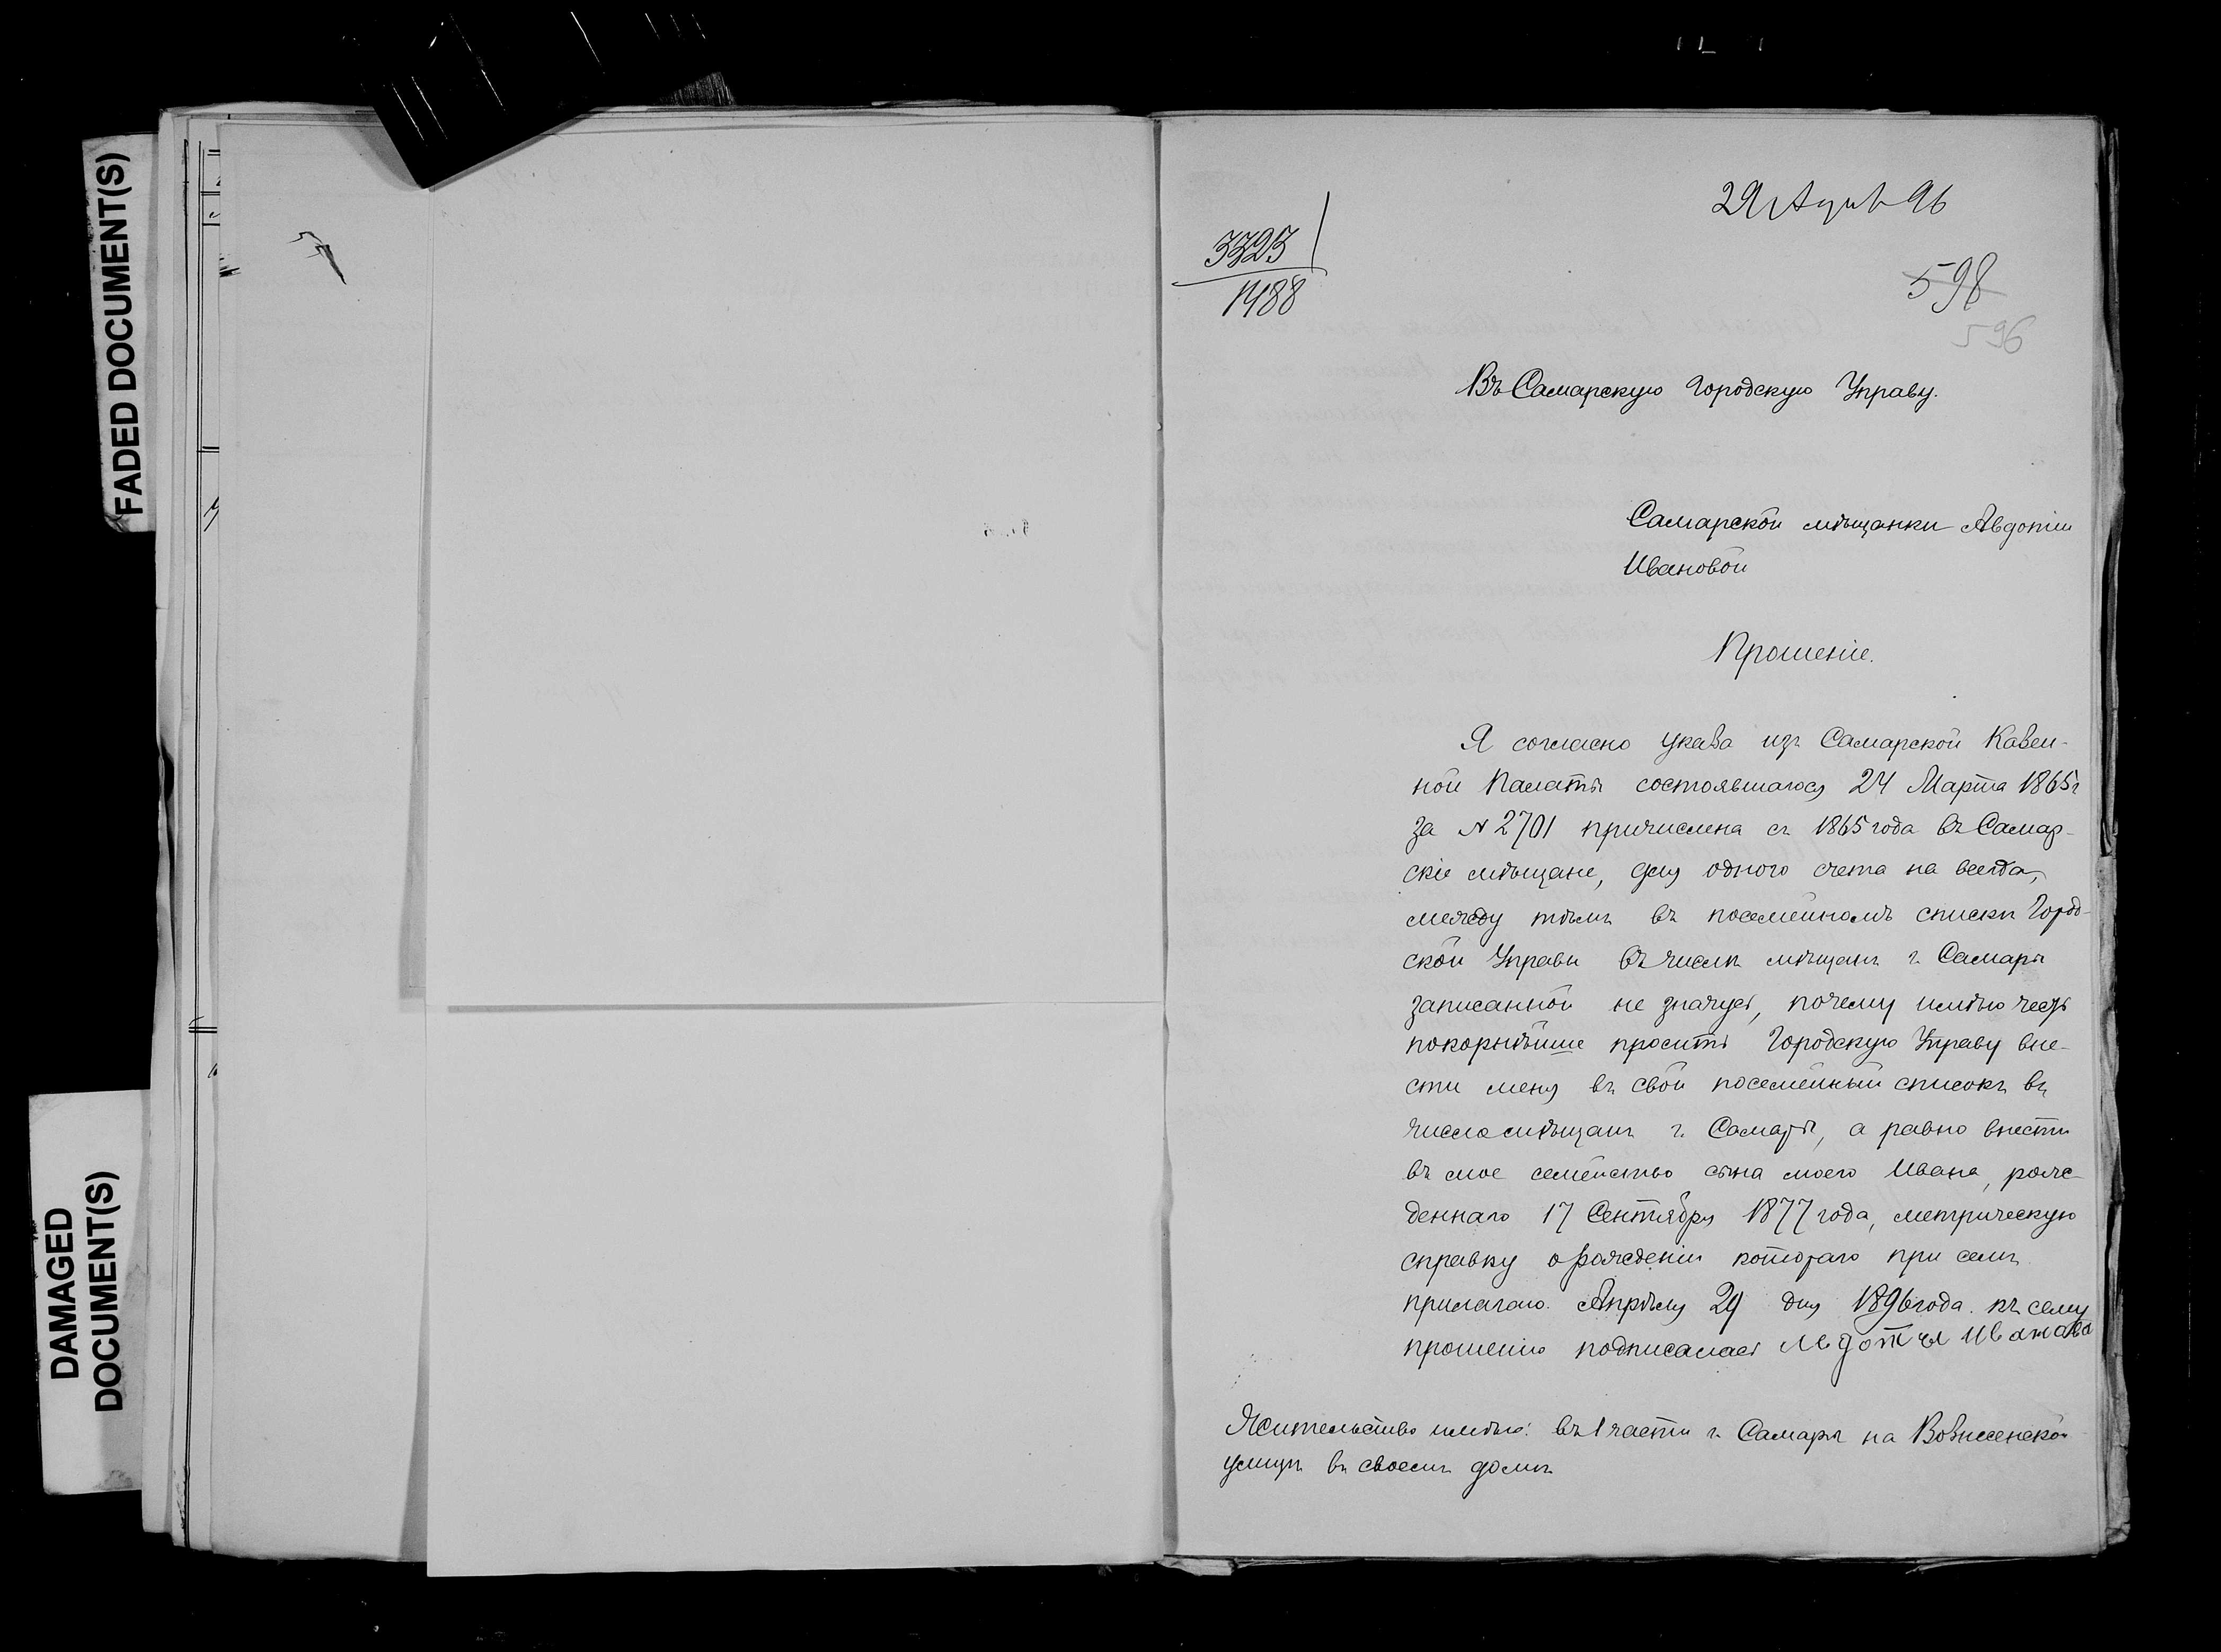 FADED DOCUMENT(S)
DAMAGED
DOCUMENT(S)
29 Апр 96
3323
1488
598
596
Въ Самарскую Городскую Управу.
Самарской мѣщанки Авдотіи
Ивановой
Прошеніе.
Я согласно указа изъ Самарской Казен-
ной Палаты состоявшагося 24 Марта 1865 г
за N 2701 причислена съ 1865 года въ Самар-
скіе мѣщане, для одного счета на всегда,
между тѣмъ въ посемейномъ списки Город-
ской Управы въ числѣ мѣщанъ г. Самары
записанной не значусь, почему имѣю честь
покорнѣйше просить Городскую Управу вне-
сти меня въ свой посемейный списокъ въ
число мѣщанъ г. Самары, а равно внести
въ мое семейство сына моего Ивана, рож-
деннаго 17 Сентября 1877 года, метрическую
справку о рожденіи котораго при семъ
прилагаю. Апрѣля 29 дня 1896 года. къ сему
прошенію подписалась Авдотья Иванова
Жительство имѣю: въ 1 части г. Самары на Вознесенской
улицѣ въ своемъ домѣ